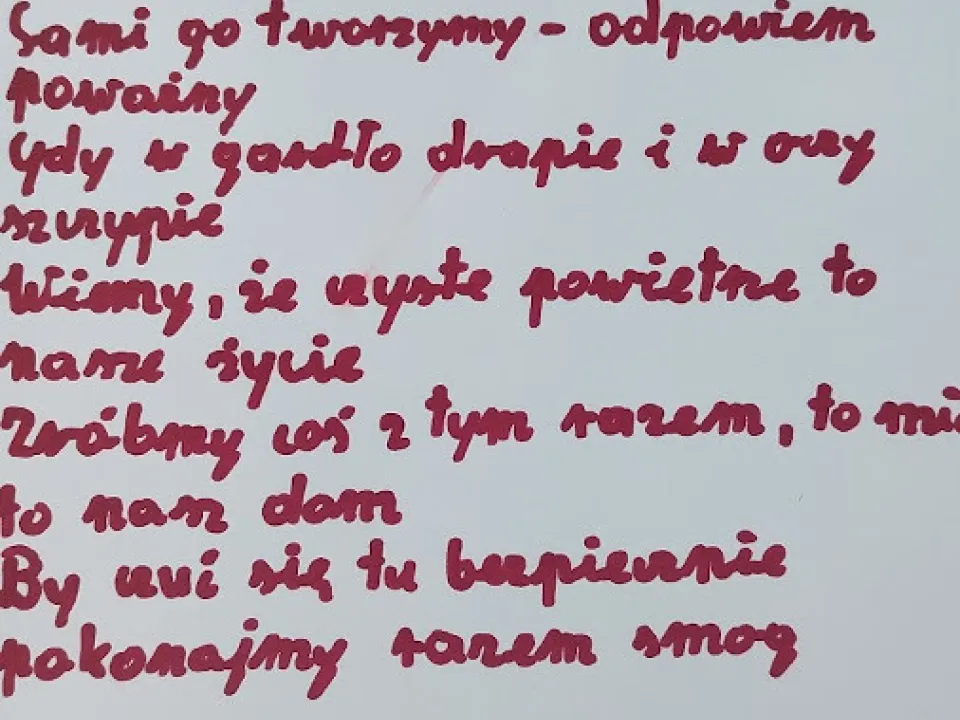 Sami go tworzymy - odpowiem
poważny
Gdy w gardło drapie i w oczy
szczypie
Wiemy, że czyste powietrze to
nasze życie
Zróbmy coś z tym razem, to
to nasz dom
By czuć się tu bezpiecznie
pokonajmy razem smog